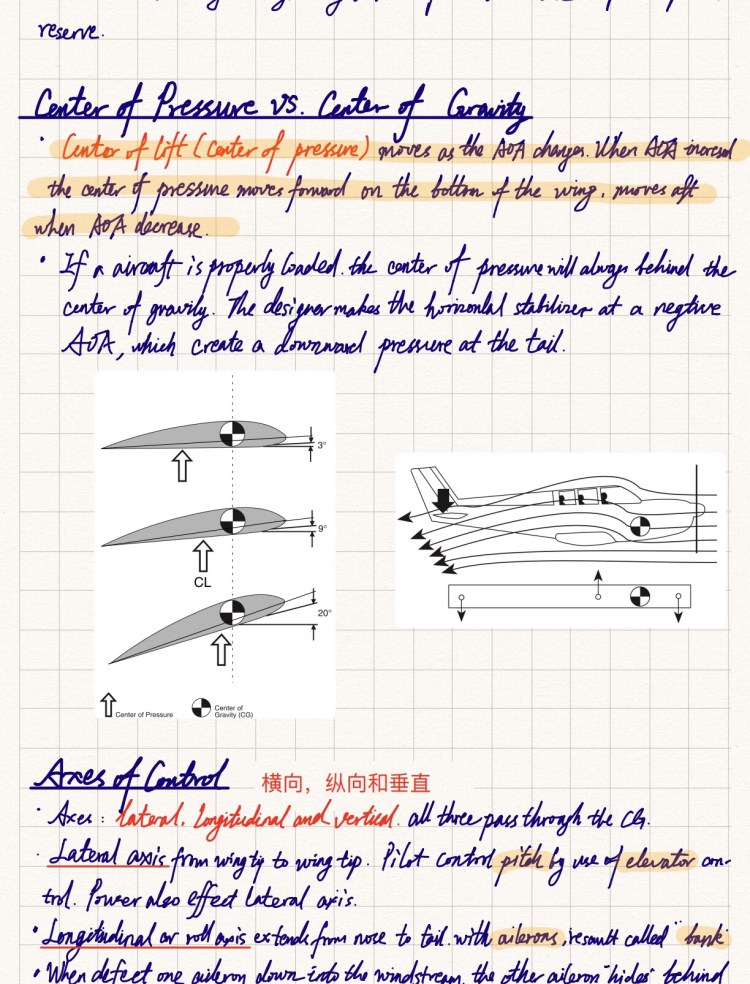 reserve.
Center of Pressure vs. Center of Gravity
· Center of lift (Center of pressure) moves as the AoA changes. When AOA increased
the center of pressure moves forward on the bottom of the wing, moves aft
when AoA decrease.
• If a aircraft is properly loaded. the center of pressure will always behind the
center of gravity. The designer makes the horizontal stabilizer at a negtive
AOA, which create a downward pressure at the tail.
3°
9°
CL
20°
Center of Pressure
Center of
Gravity (CG)
Axes of Control 横向，纵向和垂直
· Axes: lateral, longitudinal and vertical. all three pass through the CG.
· Lateral axis from wing tip to wing tip. Pilot control pitch by use of elevator con-
trol. Power also effect lateral axis.
• Longitudinal or roll axis extends from nose to tail. with ailerons, result called "bank"
• When defect one aileron down into the windstream, the other aileron "hides" behind